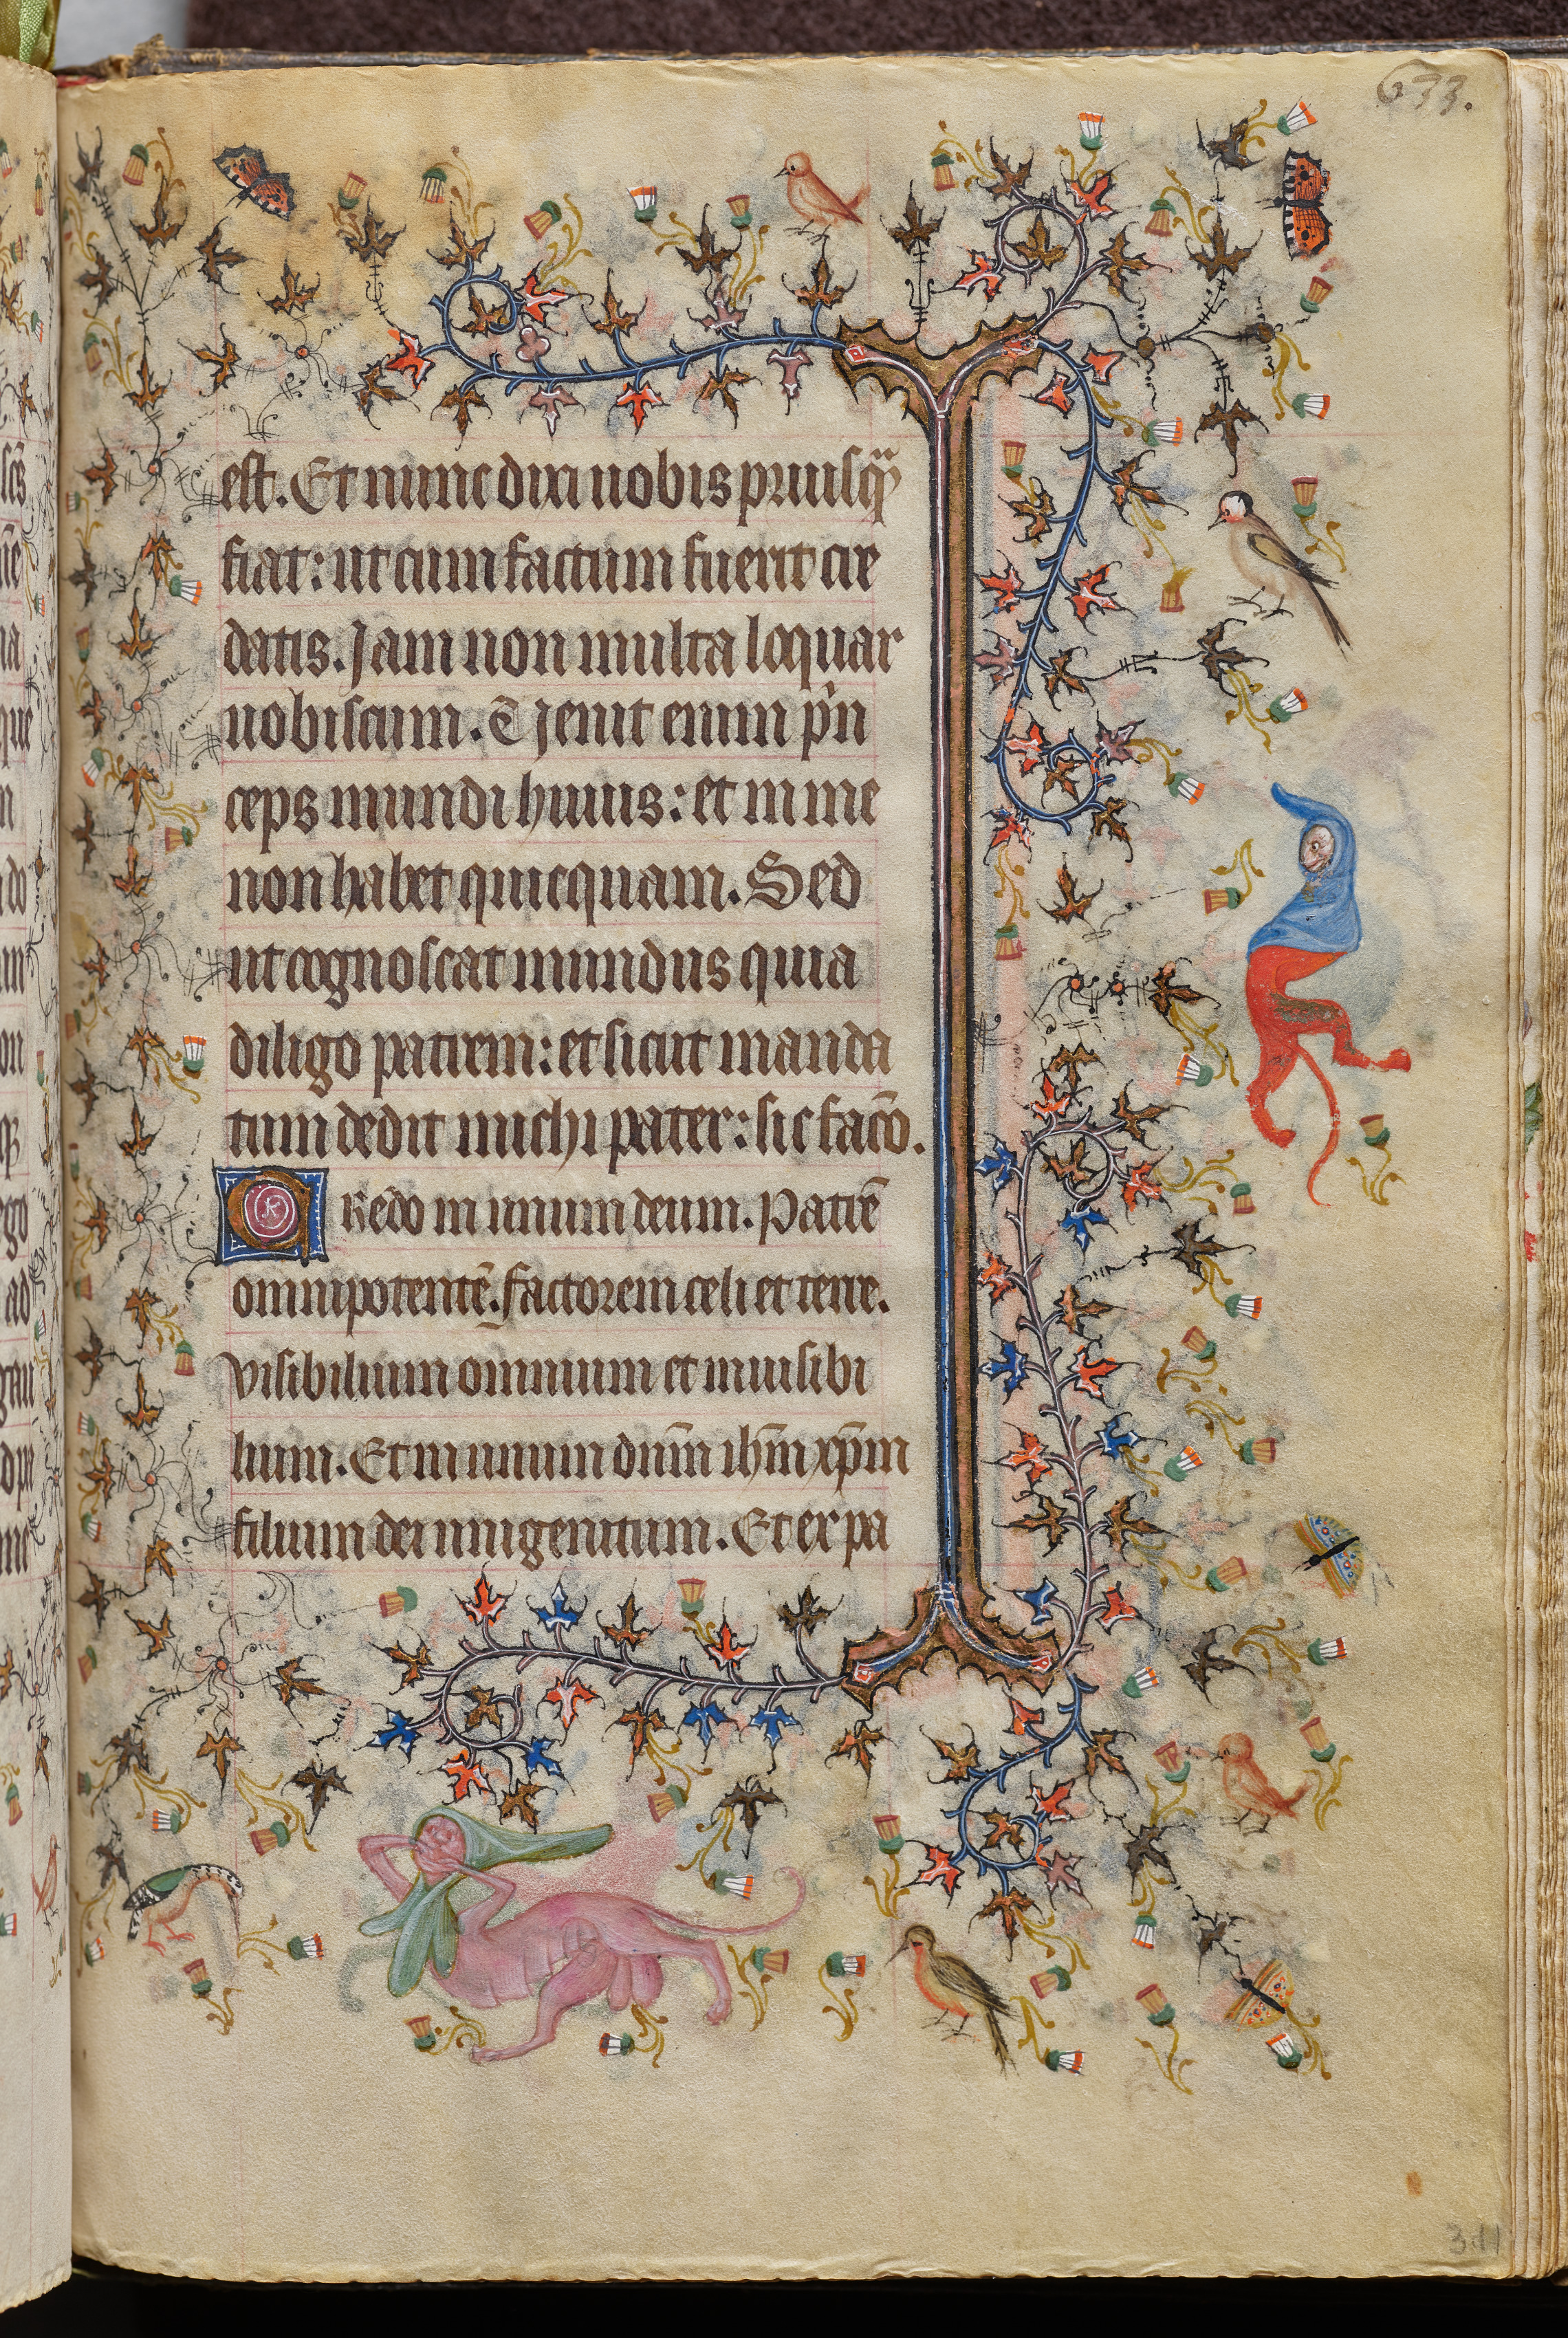 633.
est. Et nunc dixi uobis priusq̃
fiat: ut cum factum fuerit cre
datis. Jam non multa loquar
uobiscum. Uenit enim prin
ceps mundi huius: et in me
non habet quicquam. Sed
ut cognoscat mundus quia
diligo patrem: et sicut manda
tum dedit michi pater: sic facio.
CRedo in unum deum. Patrē
omnipotentē. factorem celi et terre.
visibilium omnium et inuisibi
lium. Et in unum dnm̄ ihm̄ xp̄m
filium dei unigenitum. Et ex pa